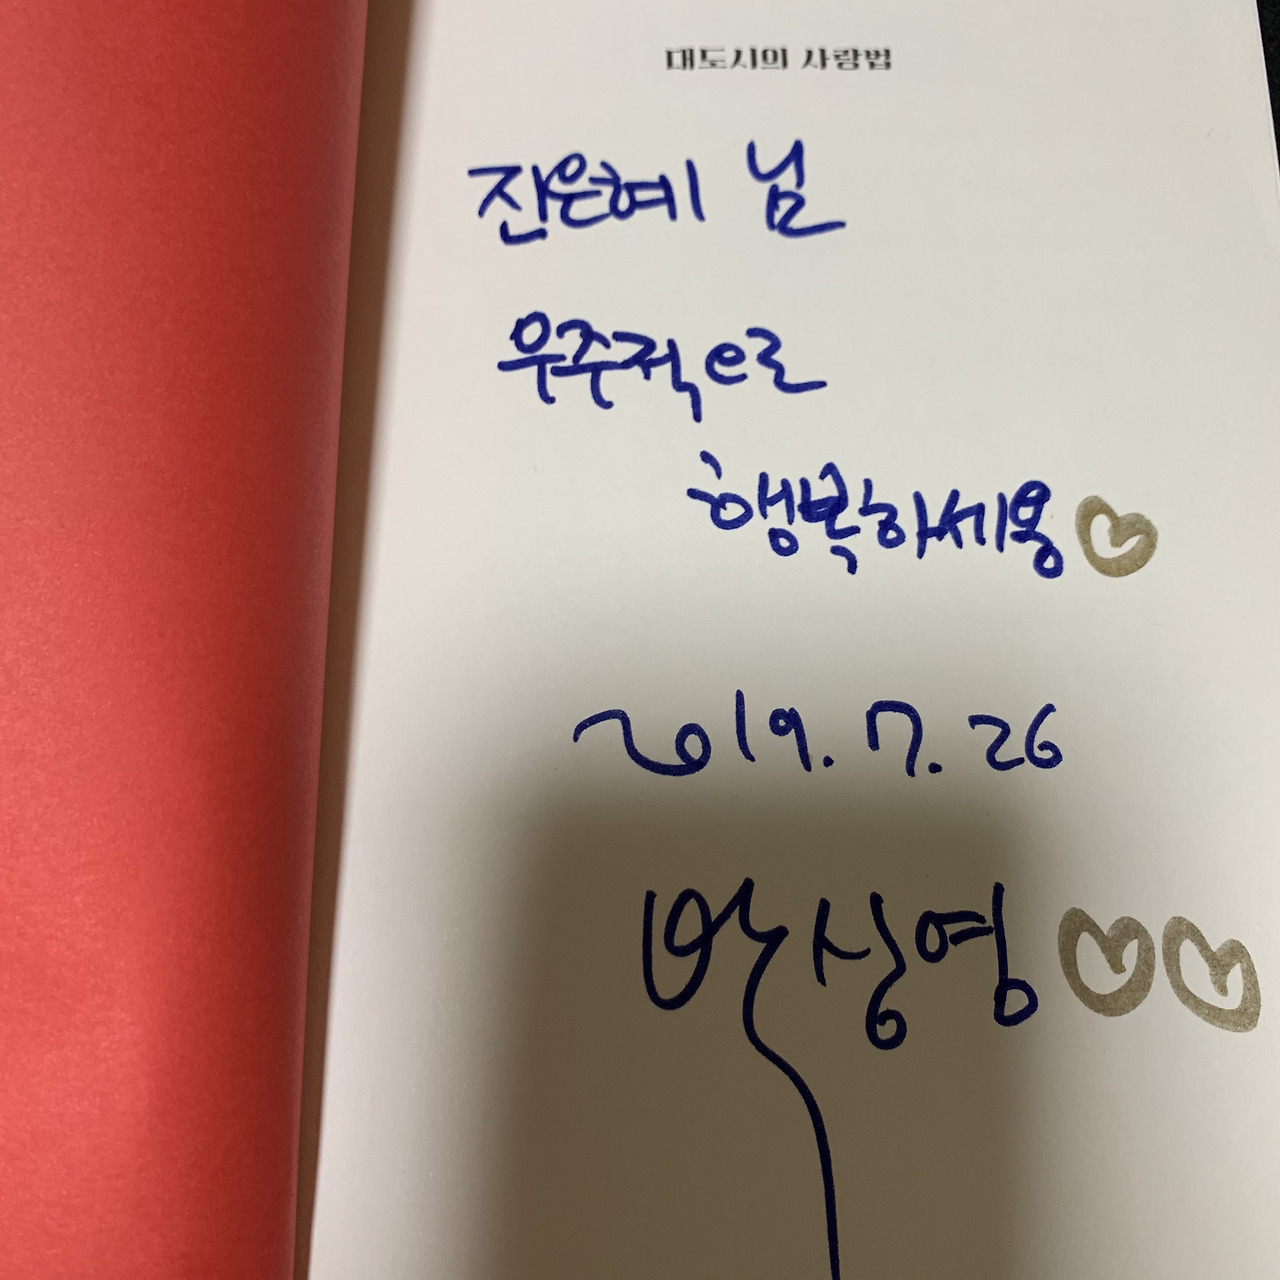 대도시의 사랑법
진은혜 님
우주적e로
행복하세용♡
2019.7.26
박상영♡♡